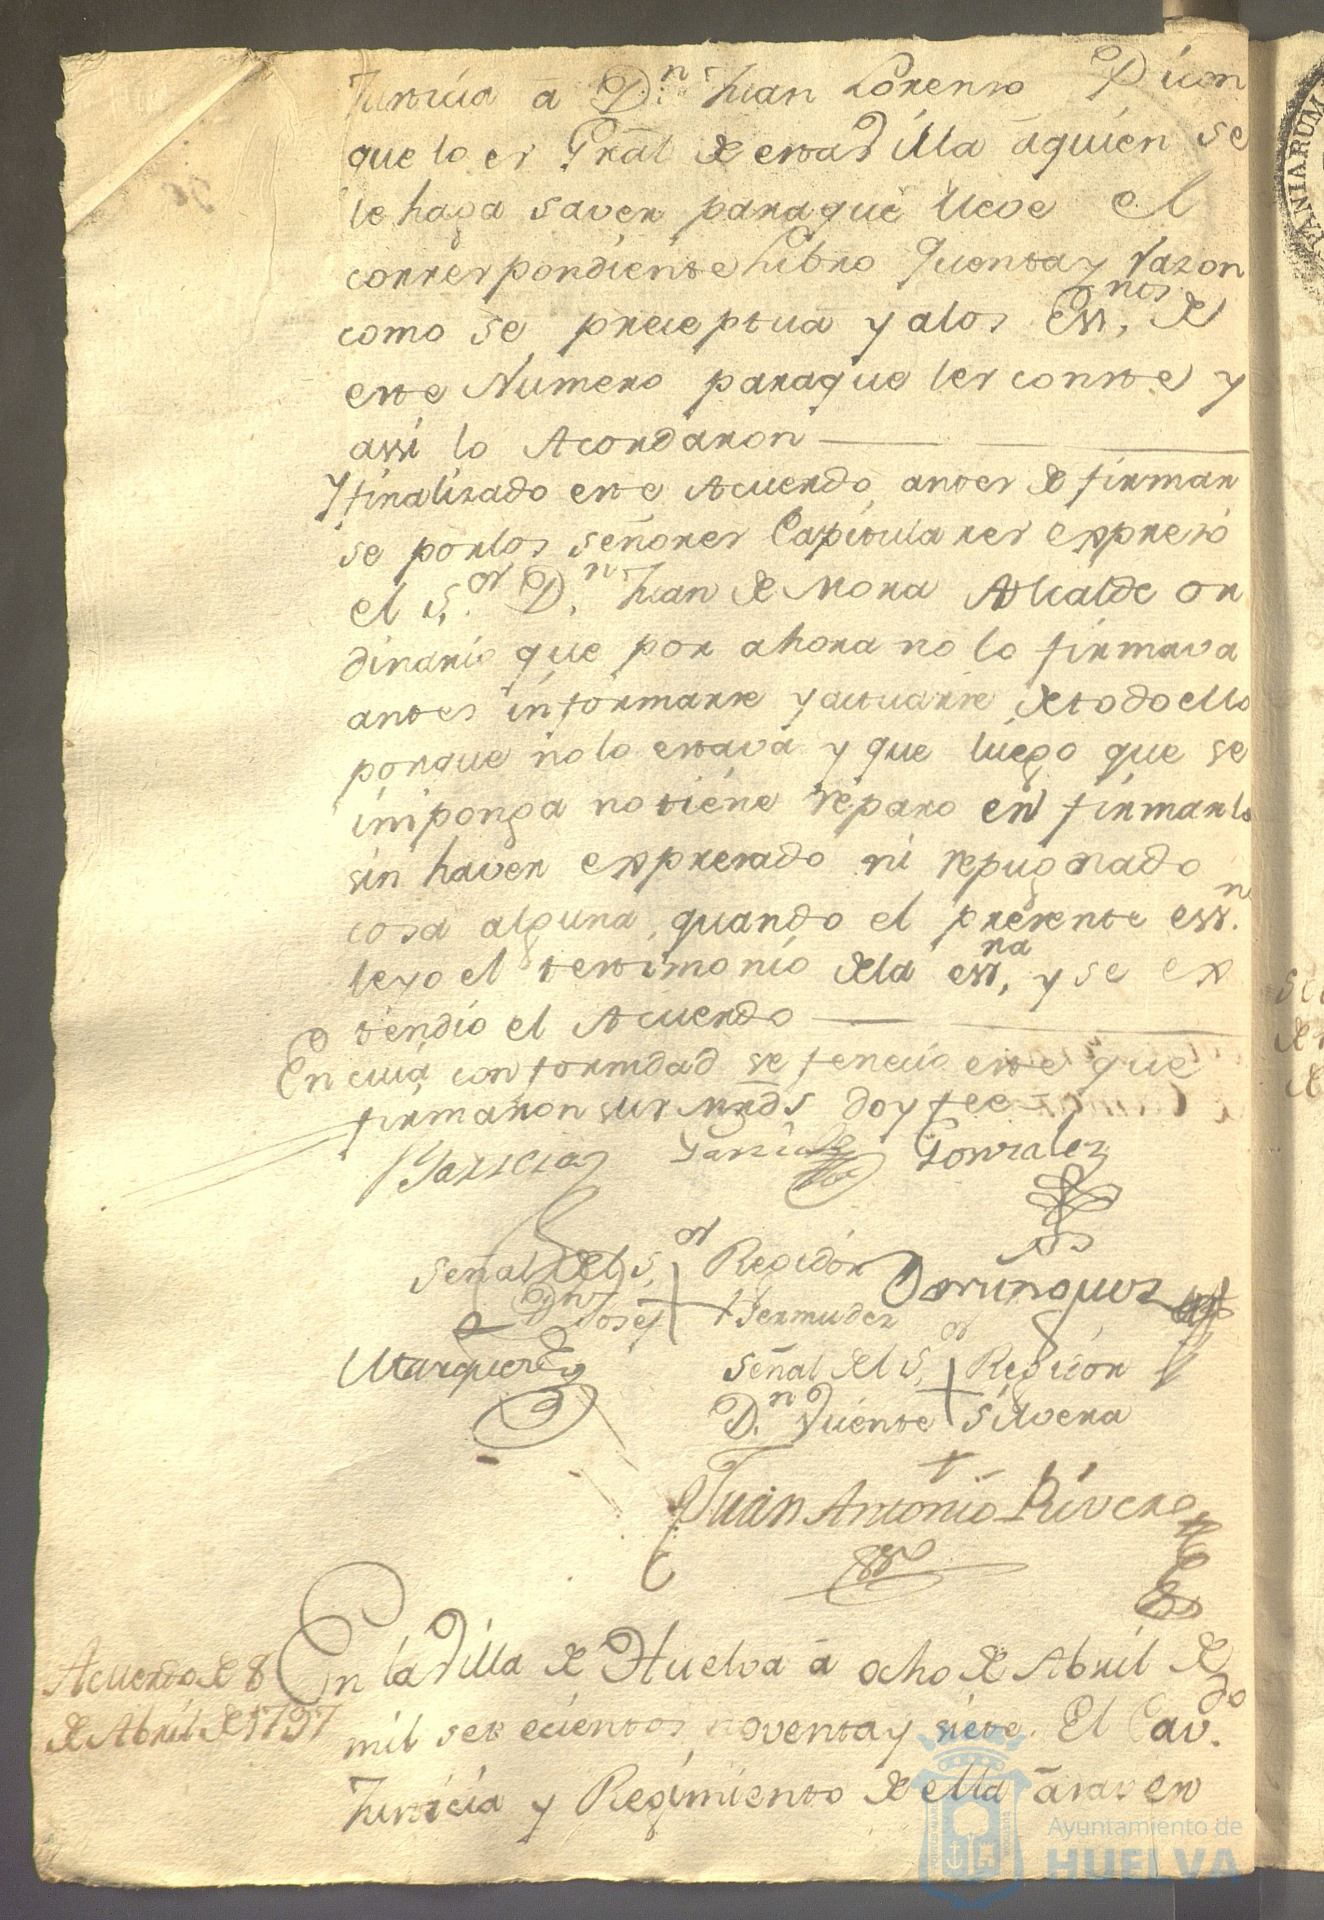 Justicia â D.n Juan Lorenso Picon
que lo es Gral de esta Villa âquien se
le haga saver paraque lleve el
correspondiente Libro Quenta y razon
como se preceptua y alos Ess.nos de
este Numero paraque les conste y
assi lo Acordaron
Y finalizado este Acuerdo antes de firmar
se porlos señores Capitulares expresó
el S.or D.n Juan de Mora Alcalde or
dinario que por ahora no lo firmava
antes informarse y actuarse de todo ello
porque no lo estava y que luego que se
imponga no tiene reparo en firmarlo
sin haver expresado ni repugnado
cosa alguna, quando el presente ess.no
leyo el testimonio dela ess.ra y se ex
tendio el Acuerdo
En cuia conformidad se fenecio este que
firmaron sus mrds doy fee
Garcia Gonzalez
Señal del S.or Regidor Dominguez
D.n Josef Bermudez
Marquez Señal del S.or Regidor
D.n Vicente Silvera
Juan Antonio Rivera
Acuerdo de 8
de Abril de 1797
En la Villa de Huelva â ocho de Abril de
mil setecientos noventa y siete. El Cav.do
Justicia y Regimiento de ella âsaver
Ayuntamiento de
HUELVA